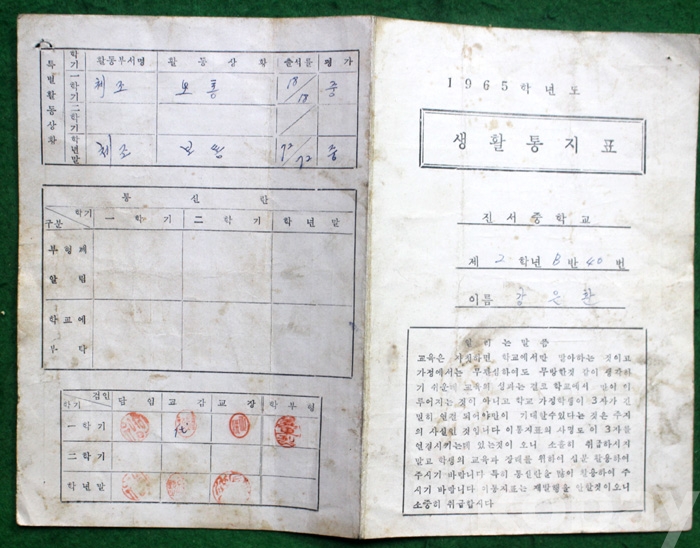 특별활동상황
학기 활동부서명 활동상황 출석률 평가
일학기 체조 보통 18/18 중
이학기
학년말 체조 보통 72/72 중
통신란
구분 학기 一학기 二학기 학년말
부형께
알림
학교에
부탁
학기 검인 담임 교감 교장 학부형
一학기
二학기
학년말
1965학년도
생활통지표
진서중학교
제 2 학년 8 반 40 번
이름 강은환
알리는말씀
교육은 가정하면 학교에서만 맡아하는 것이고
가정에서는 무관심하여도 무방한것 같이 생각하
기 쉬운데 교육의 성과는 결코 학교에서 만이 이
루어지는 것이 아니고 학교 가정학생이 3자가 긴
밀히 연결 되어야만이 기대할수있다는 것은 주지
의 사실인 것입니다 이통지표의 사명도 이 3자를
연결시키는데 있는것이 오니 소중히 취급하시지
말고 학생의 교육과 장래를 위하여 십분 활용하여
주시기 바랍니다 특히 통신란을 많이 활용하여 주
시기 바랍니다 이통지표는 재발행을 않을것이오니
소중히 취급합시다